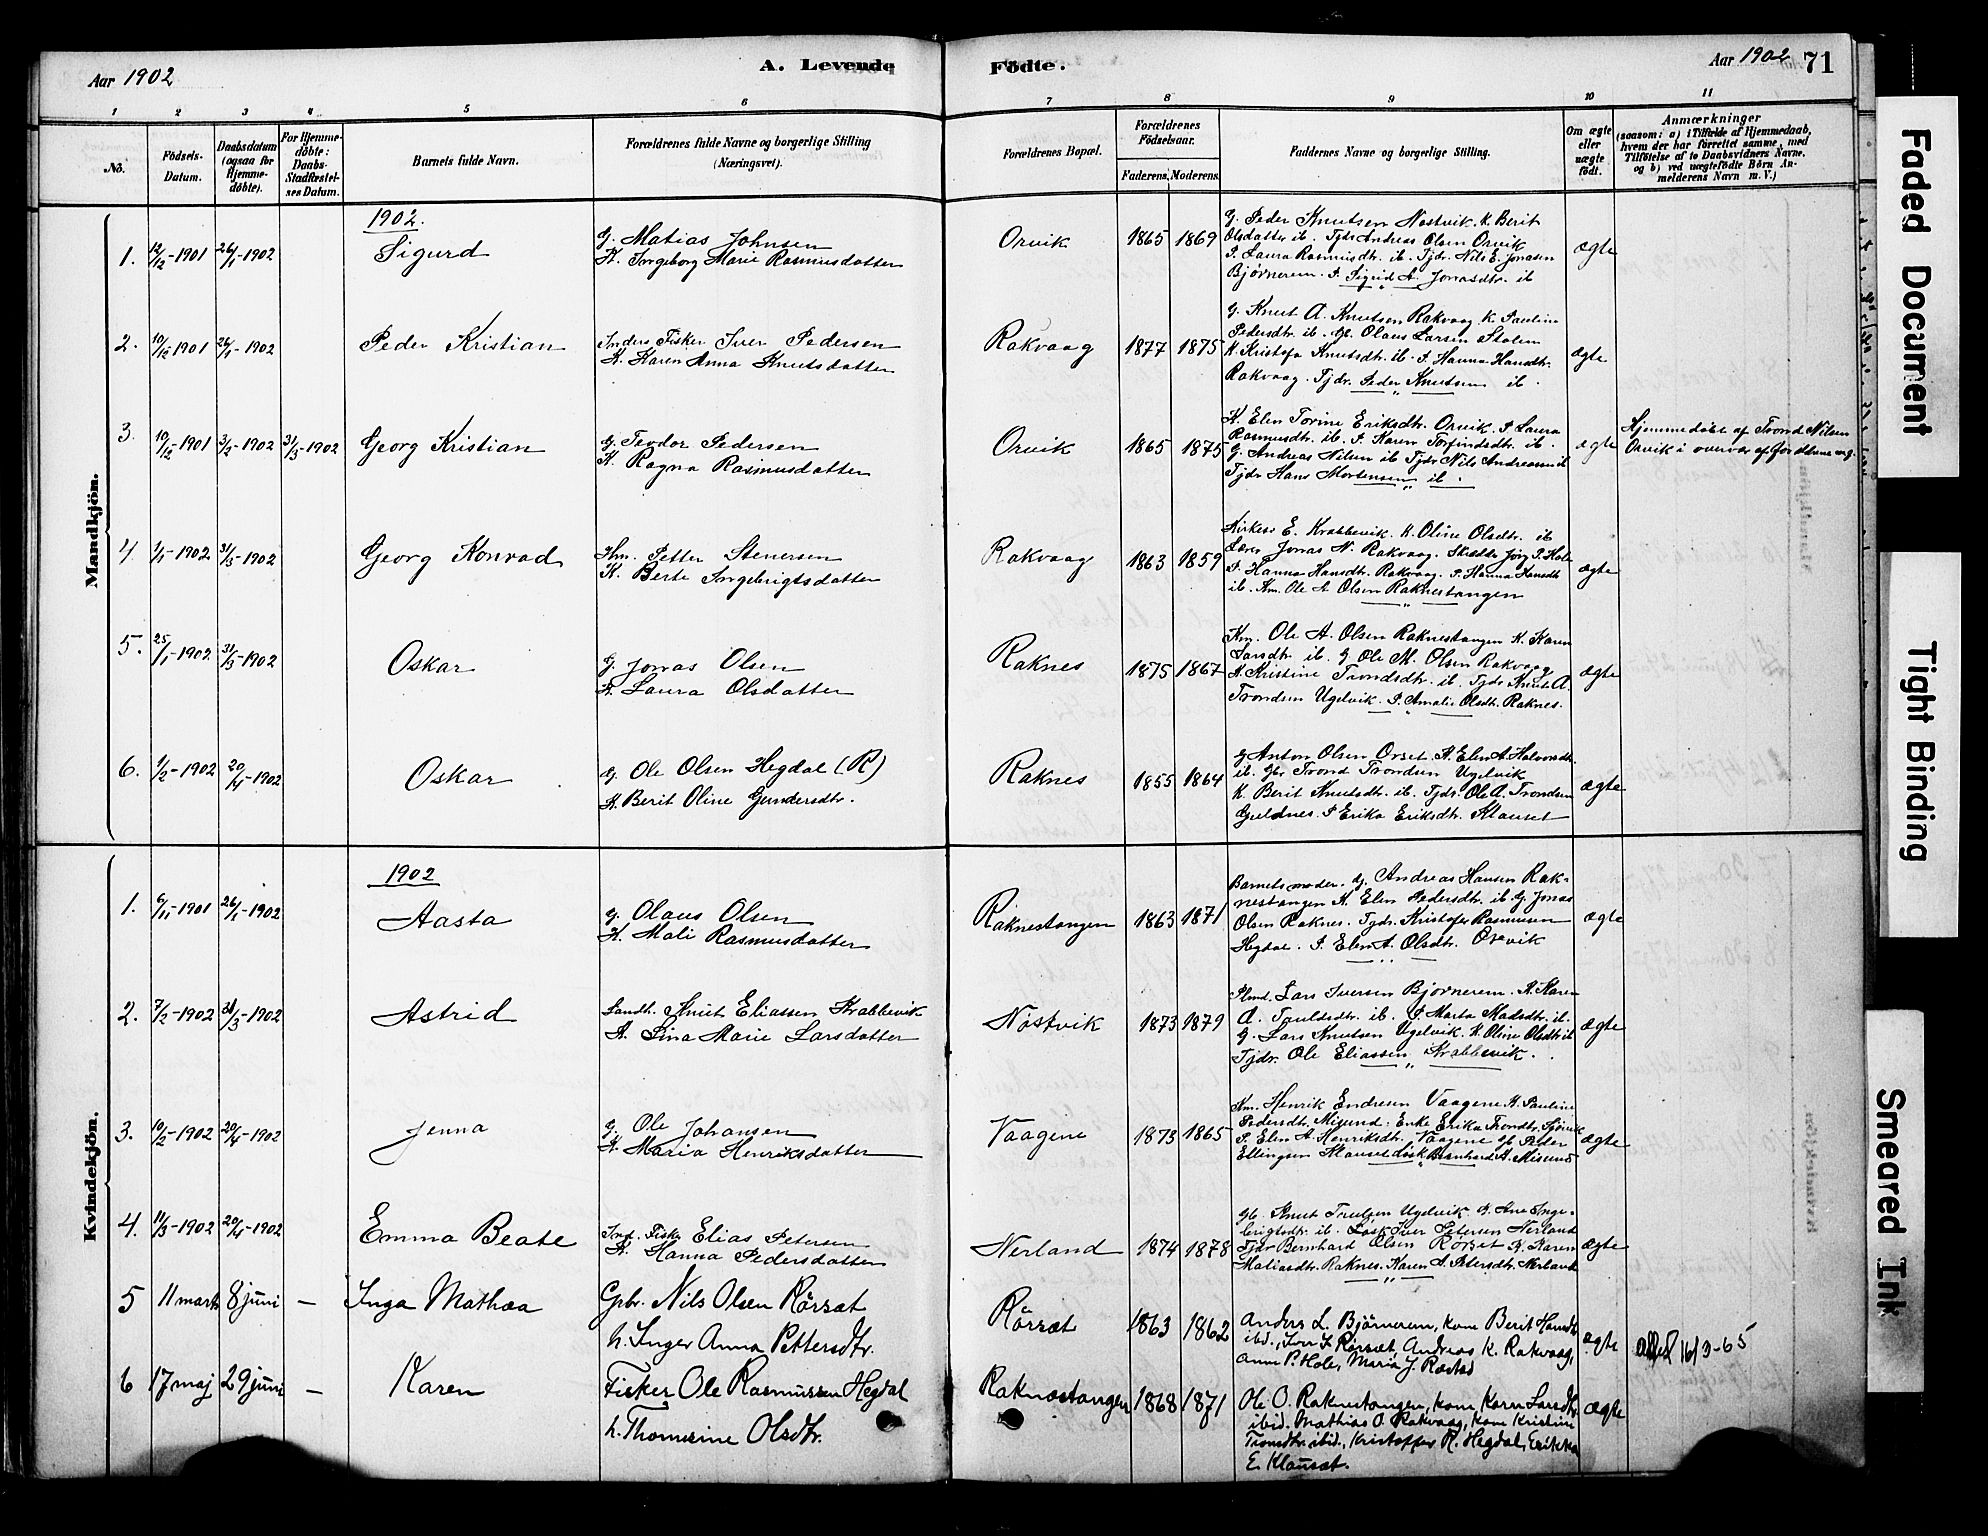 Aar 1902
A. Levende
Födte.
Aar 1902
71
1 2 3 4 5 6 7 8 9 10 11
No.
Födsels-Datum.
Daabsdatum (ogsaa for Hjemme-döbte).
For Hjemme-döbte: Daabs-Stadfæstel-ses Datum.
Barnets fulde Navn.
Forældrenes fulde Navne og borgerlige Stilling
(Næringsvei).
Forældrenes Bopæl.
Forældrenes Födselsaar.
Faderens. Moderens.
Faddernes Navne og borgerlige Stilling.
Om ægte eller uægte födt.
Anmærkninger
(saasom: a) i Tilfælde af Hjemmedaab,
hvem der har forrettet samme, med
Tilföielse af to Daabsvidners Navne,
og b) ved uægtefödte Börn An-
melderens Navn m. V.)
Mandkjön.
1902.
1. 12/12-1901 26/1-1902 Sigurd
G. Matias Johnsen
K. Ingeborg Marie Rasmusdatter
Orvik 1865 1869
G. Peder Knutsen Nøstvik. K. Berit
Olsdatter ib. Tjdr. Andreas Olsen Orvik
P. Laura Rasmusdtr. ib. Tjdr. Nils E. Jonasen
Bjørnerem. P. Sigrid A. Jonasdtr. ib
ægte
2. 10/12-1901 26/1-1902 Peder Kristian
Inders. Fisker Iver Pedersen
K. Karen Anna Knutsdatter
Rakvaag 1877 1875
G. Knut A. Knutsen Rakvaag. K. Pauline
Pedersdtr. ib. Gb. Olaus Larsen Stolen
K. Kristofa Knutsdtr. ib. P. Hanna Hansdtr.
Rakvaag. Tjdr. Peder Knutsen ib.
ægte
3. 10/12-1901 3/2-1902 31/3-1902 Georg Kristian
G. Teodor Pedersen
K. Ragna Rasmusdatter
Orvik 1865 1875
K. Elen Torine Eriksdtr. Orvik. P. Laura
Rasmusdtr. ib. P. Karen Torfindsdtr. ib.
G. Andreas Nilsen ib Tjdr. Nils Andreassen ib
Tjdr. Hans Mortensen ib.
ægte
Hjemmedøbt af Trond Nilsen
Orvik i overvær af forældrene
4. 1/1-1902 31/3-1902 Georg Konrad
Hm. Petter Stenersen
K. Berte Ingebrigtsdatter
Rakvaag 1863 1859
E. Krabbevik. K. Oline Olsdtr. ib
Lærer Jonas N. Rakvaag. P. Hole
P. Hanna Hansdtr. Rakvaag. P. Hanna Hansdtr
ib. Km. Ole A. Olsen Raknestangen
ægte
5. 25/1-1902 31/3-1902 Oskar
G. Jonas Olsen
K. Laura Olsdatter
Raknes 1875 1867
Km. Ole A. Olsen Raknestangen K. Karen
Larsdtr. ib. G. Ole M. Olsen Rakvaag
K. Kristine Trondsdtr. ib. Tjdr. Knut A.
Trondsen Ugelvik. P. Amalie Olsdtr. Raknes.
ægte
6. 1/2-1902 20/4-1902 Oskar
G. Ole Olsen Hegdal (R)
K. Berit Oline Gundersdtr.
Raknes 1855 1864
G. Anton Olsen Orset. K. Elen A. Halvorsdtr.
ib. Gbr. Trond Trondsen Ugelvik
K. Berit Knutsdtr. ib. Tjdr. Ole A. Trondsen
Guldnes. P. Erika Eriksdtr. Klauset
ægte
Kvindekjön.
1902
1. 6/11-1901 26/1-1902 Aasta
G. Olaus Olsen
K. Mali Rasmusdatter
Raknestangen 1863 1871
Barnets moder. G. Andreas Hansen Rak-
nestangen K. Elen Pedersdtr. ib. G. Jonas
Olsen Raknes. Tjdr. Kristofer Rasmussen
Hegdal. P. Elen A. Olsdtr. Orvik
ægte
2. 7/2-1902 31/3-1902 Astrid
Landh. Knut Eliassen Krabbevik
K. Lina Marie Larsdatter
Nøstvik 1873 1879
Lars Iversen Bjørnerem. K. Karen
A. Pauldsdtr. ib. P. Marta Madsdtr. ib.
G. Lars Knutsen Ugelvik. K. Oline Olsdtr. ib
Tjdr. Ole Eliassen Krabbevik.
ægte
3. 10/2-1902 20/4-1902 Jenna
G. Ole Johansen
K. Maria Henriksdatter
Vaagene 1873 1865
Km. Henrik Endresen Vaagene K. Pauline
Pedersdtr. Misund. Enke Erika Trondtr.
P. Elen A. Henriksdtr. Vaagene Gb. Peder
Ellingsen Klauset Fisk. Bernhard A. Misund
ægte
4. 11/3-1902 20/4-1902 Emma Beate
Ind. Fisker Elias Petersen
K. Hanna Pedersdatter
Nerland 1874 1878
Gb. Knut Truelsen Ugelvik K. Ane Inge-
brigtsdtr. ib. Fisk Iver Petersen Nerland
Tjdr Bernhard Olsen Rørset K. Karen
Matiasdtr. Raknes. Karen A. Petersdtr. Nerland
ægte
5 11 marts 8 juni — Inga Mathea
Gbr. Nils Olsen Rørsæt
h. Inger Anna Pettersdtr.
Rørsæt 1863 1862
Anders L. Bjørnerem, kone Berit Hansdtr
ibid., Iver I. Rørsæt, Andreas K. Rakvaag,
Anne P. Hole, Maria J. Røstad
ægte
16/3-65
6 17 maj 29 juni — Karen
Fisker Ole Rasmussen Hegdal
h. Thomasine Olsdtr.
Raknæstangen 1868 1871
Ole O. Raknestangen, kone Karen Larsdtr.
ibid. Mathias O. Rakvaag, kone Kristine
Tronsdtr. ibid., Kristoffer R. Hegdal, Erikka
E. Klausæt.
ægte
Faded Document
Tight Binding
Smeared Ink